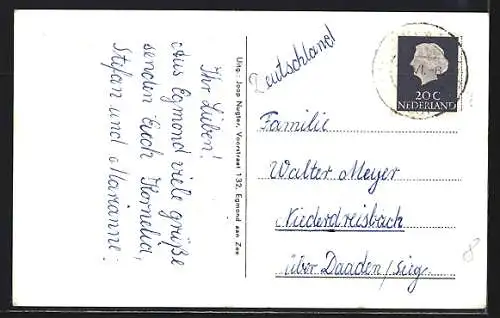 Ihr Lieben!
Aus Egmond viele grüße
senden Euch Kornelia,
Stefan und Marianne.
Uitg. Joop Nugter, Voorstraat 132, Egmond aan Zee
Deutschland
20C
NEDERLAND
Familie
Walter Meyer
Niederdreisbach
über Daaden/Sieg
8